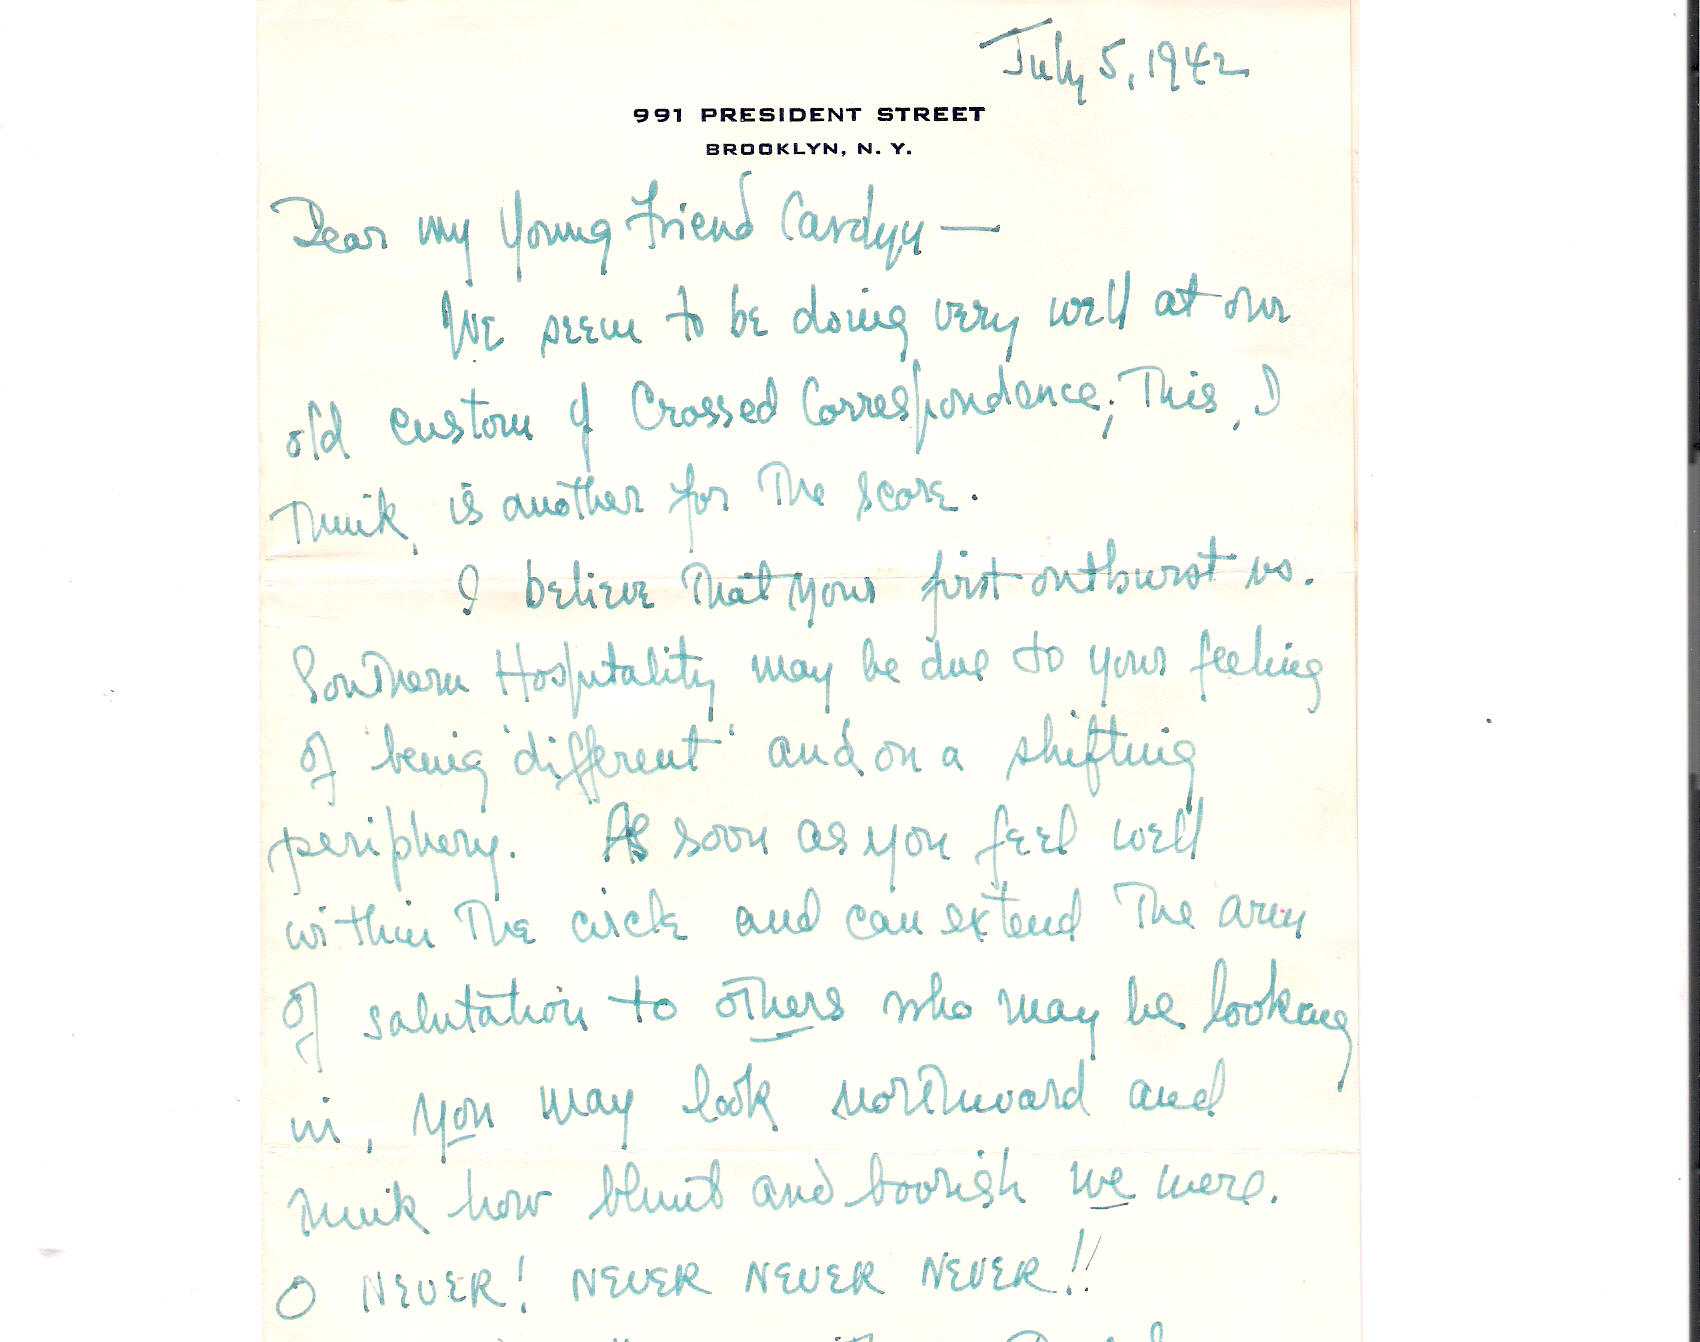 July 5, 1942
991 PRESIDENT STREET
BROOKLYN, N. Y.
Dear my Young Friend Carolyn —
We seem to be doing very well at our
old custom of Crossed Correspondence; This, I
Think, is another for The score.
I believe That your first outburst vs.
Southern Hospitality may be due to your feeling
of 'being 'different' and on a shifting
periphery. As soon as you feel well
within The circle and can extend The arm
of salutation to others who may be looking
in, you may look northward and
Think how blunt and boorish we were.
O NEVER! NEVER NEVER NEVER!!